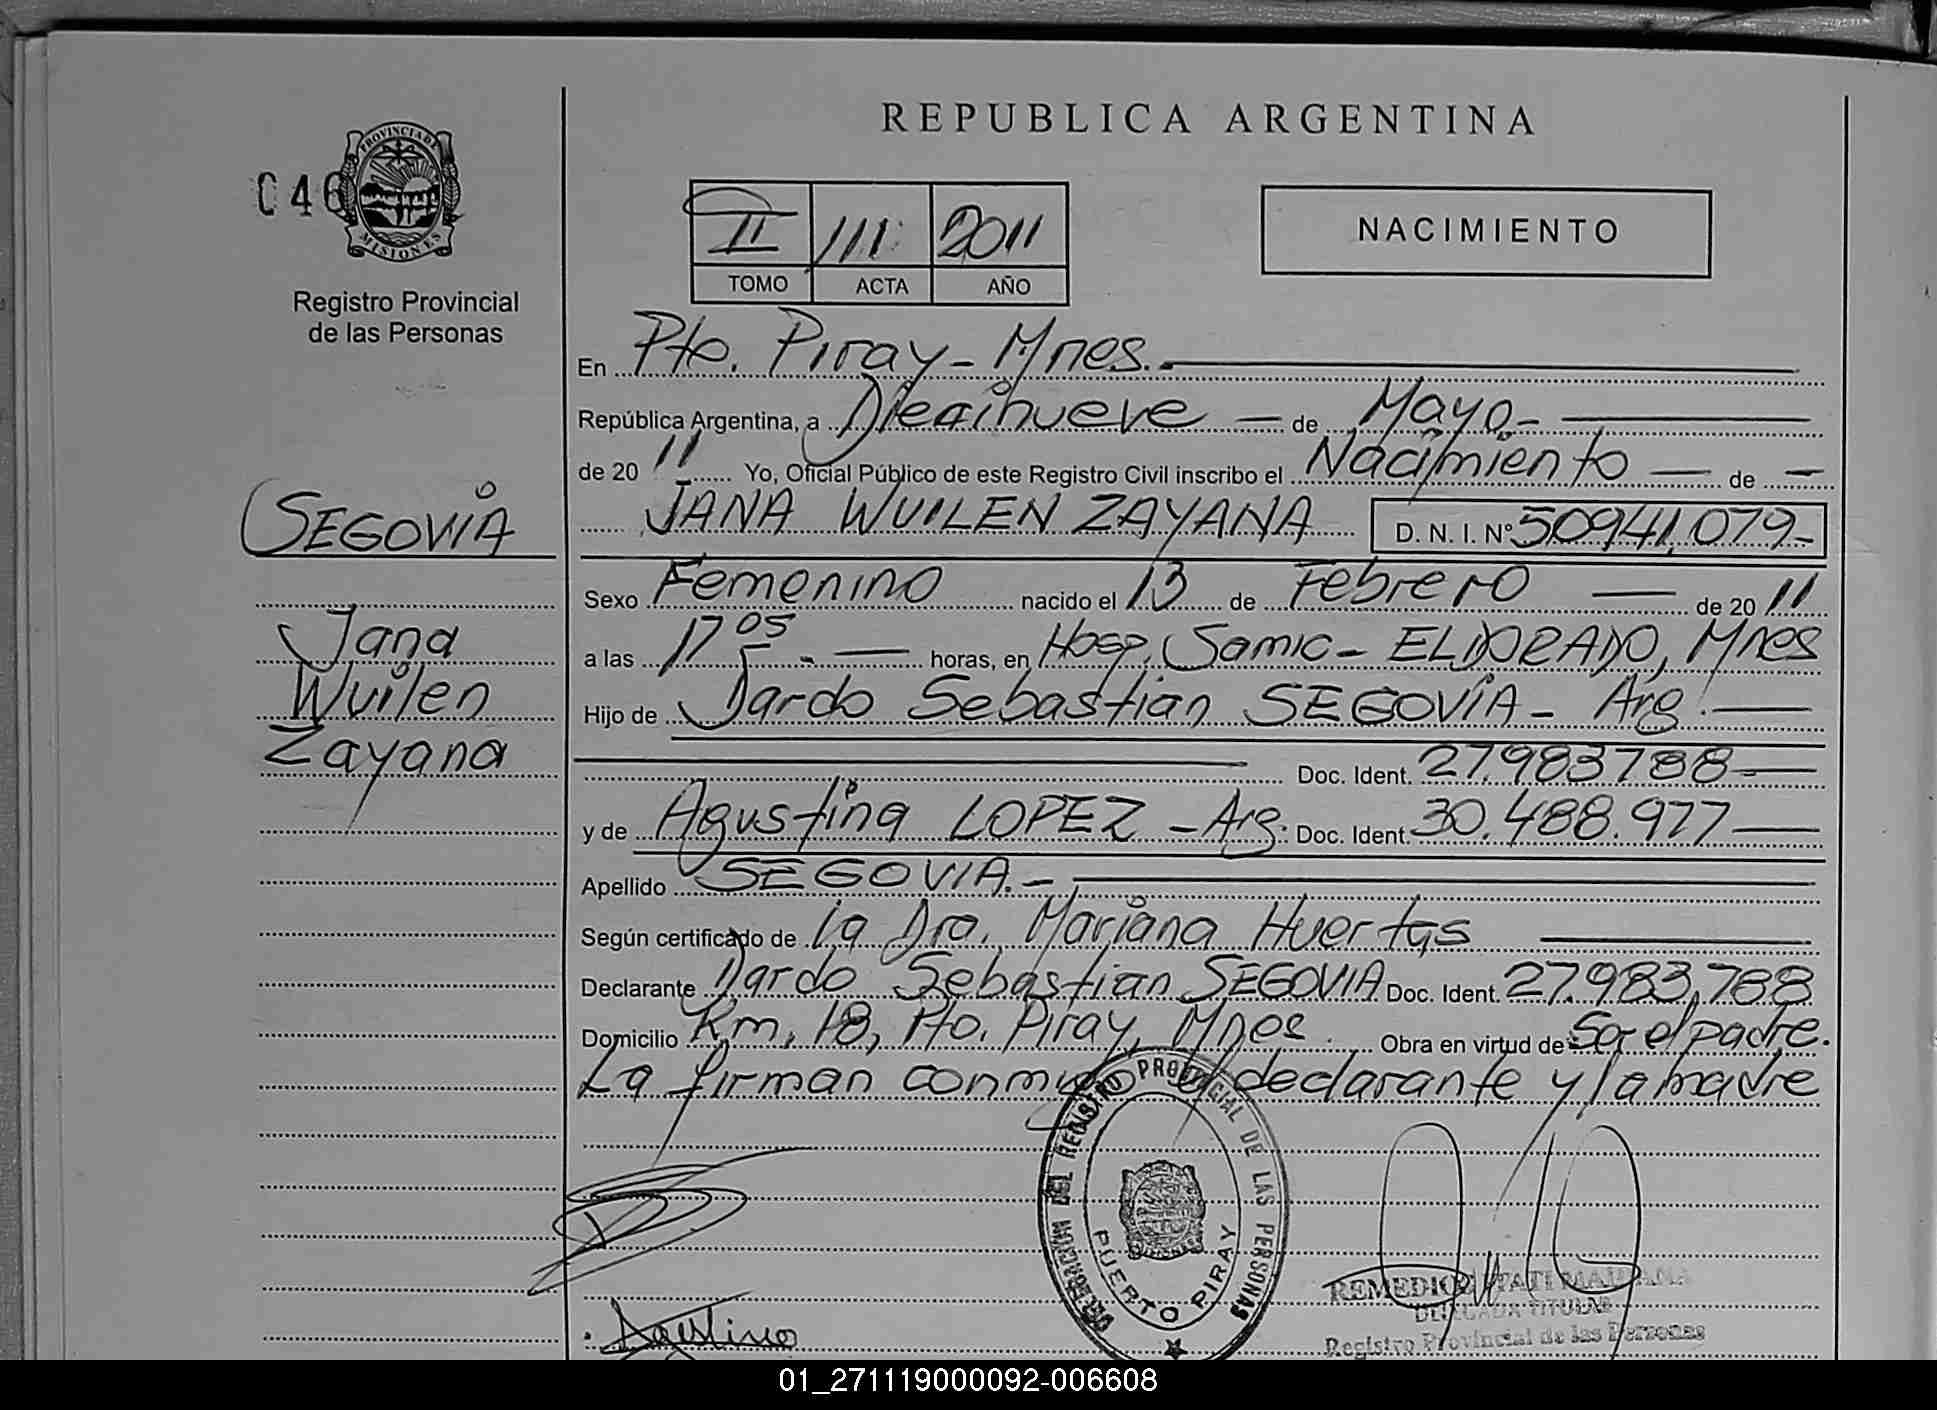 REPUBLICA ARGENTINA
046
PROVINCIA DE
MISIONES
Registro Provincial
de las Personas
II 111 2011
TOMO ACTA AÑO
NACIMIENTO
En Pto. Piray - Mnes.
República Argentina, a Diecinueve de Mayo
de 20 11 Yo, Oficial Público de este Registro Civil inscribo el Nacimiento de
JANA WUILEN ZAYANA D. N. I. Nº 50941.079
Sexo Femenino nacido el 13 de Febrero de 20 11
a las 17 05 horas, en Hosp. Samic - ELDORADO, Mnes
Hijo de Dardo Sebastian SEGOVIA - Arg.
Doc. Ident. 27.983788
y de Agustina LOPEZ - Arg. Doc. Ident. 30.488.977
Apellido SEGOVIA.
Según certificado de la Dra. Mariana Huertas
Declarante Dardo Sebastian SEGOVIA Doc. Ident. 27.983.788
Domicilio Km. 18, Pto. Piray, Mnes Obra en virtud de Ser el padre.
La firman conmigo el declarante y la madre
SEGOVIA
Jana
Wuilen
Zayana
DEL REGISTRO PROVINCIAL DE LAS PERSONAS
PUERTO PIRAY
Agustina
REMEDIOS ITATI
DELEGADA TITULAR
Registro Provincial de las Personas
01_271119000092-006608